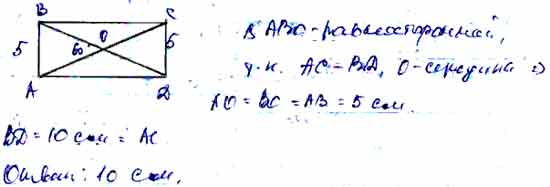 B C
O
5 60° 5
A D
В ABO - равносторонний,
т.к. AC = BD, O - середина ⇒
AO = BO = AB = 5 см.
BD = 10 см = AC
Ответ: 10 см.